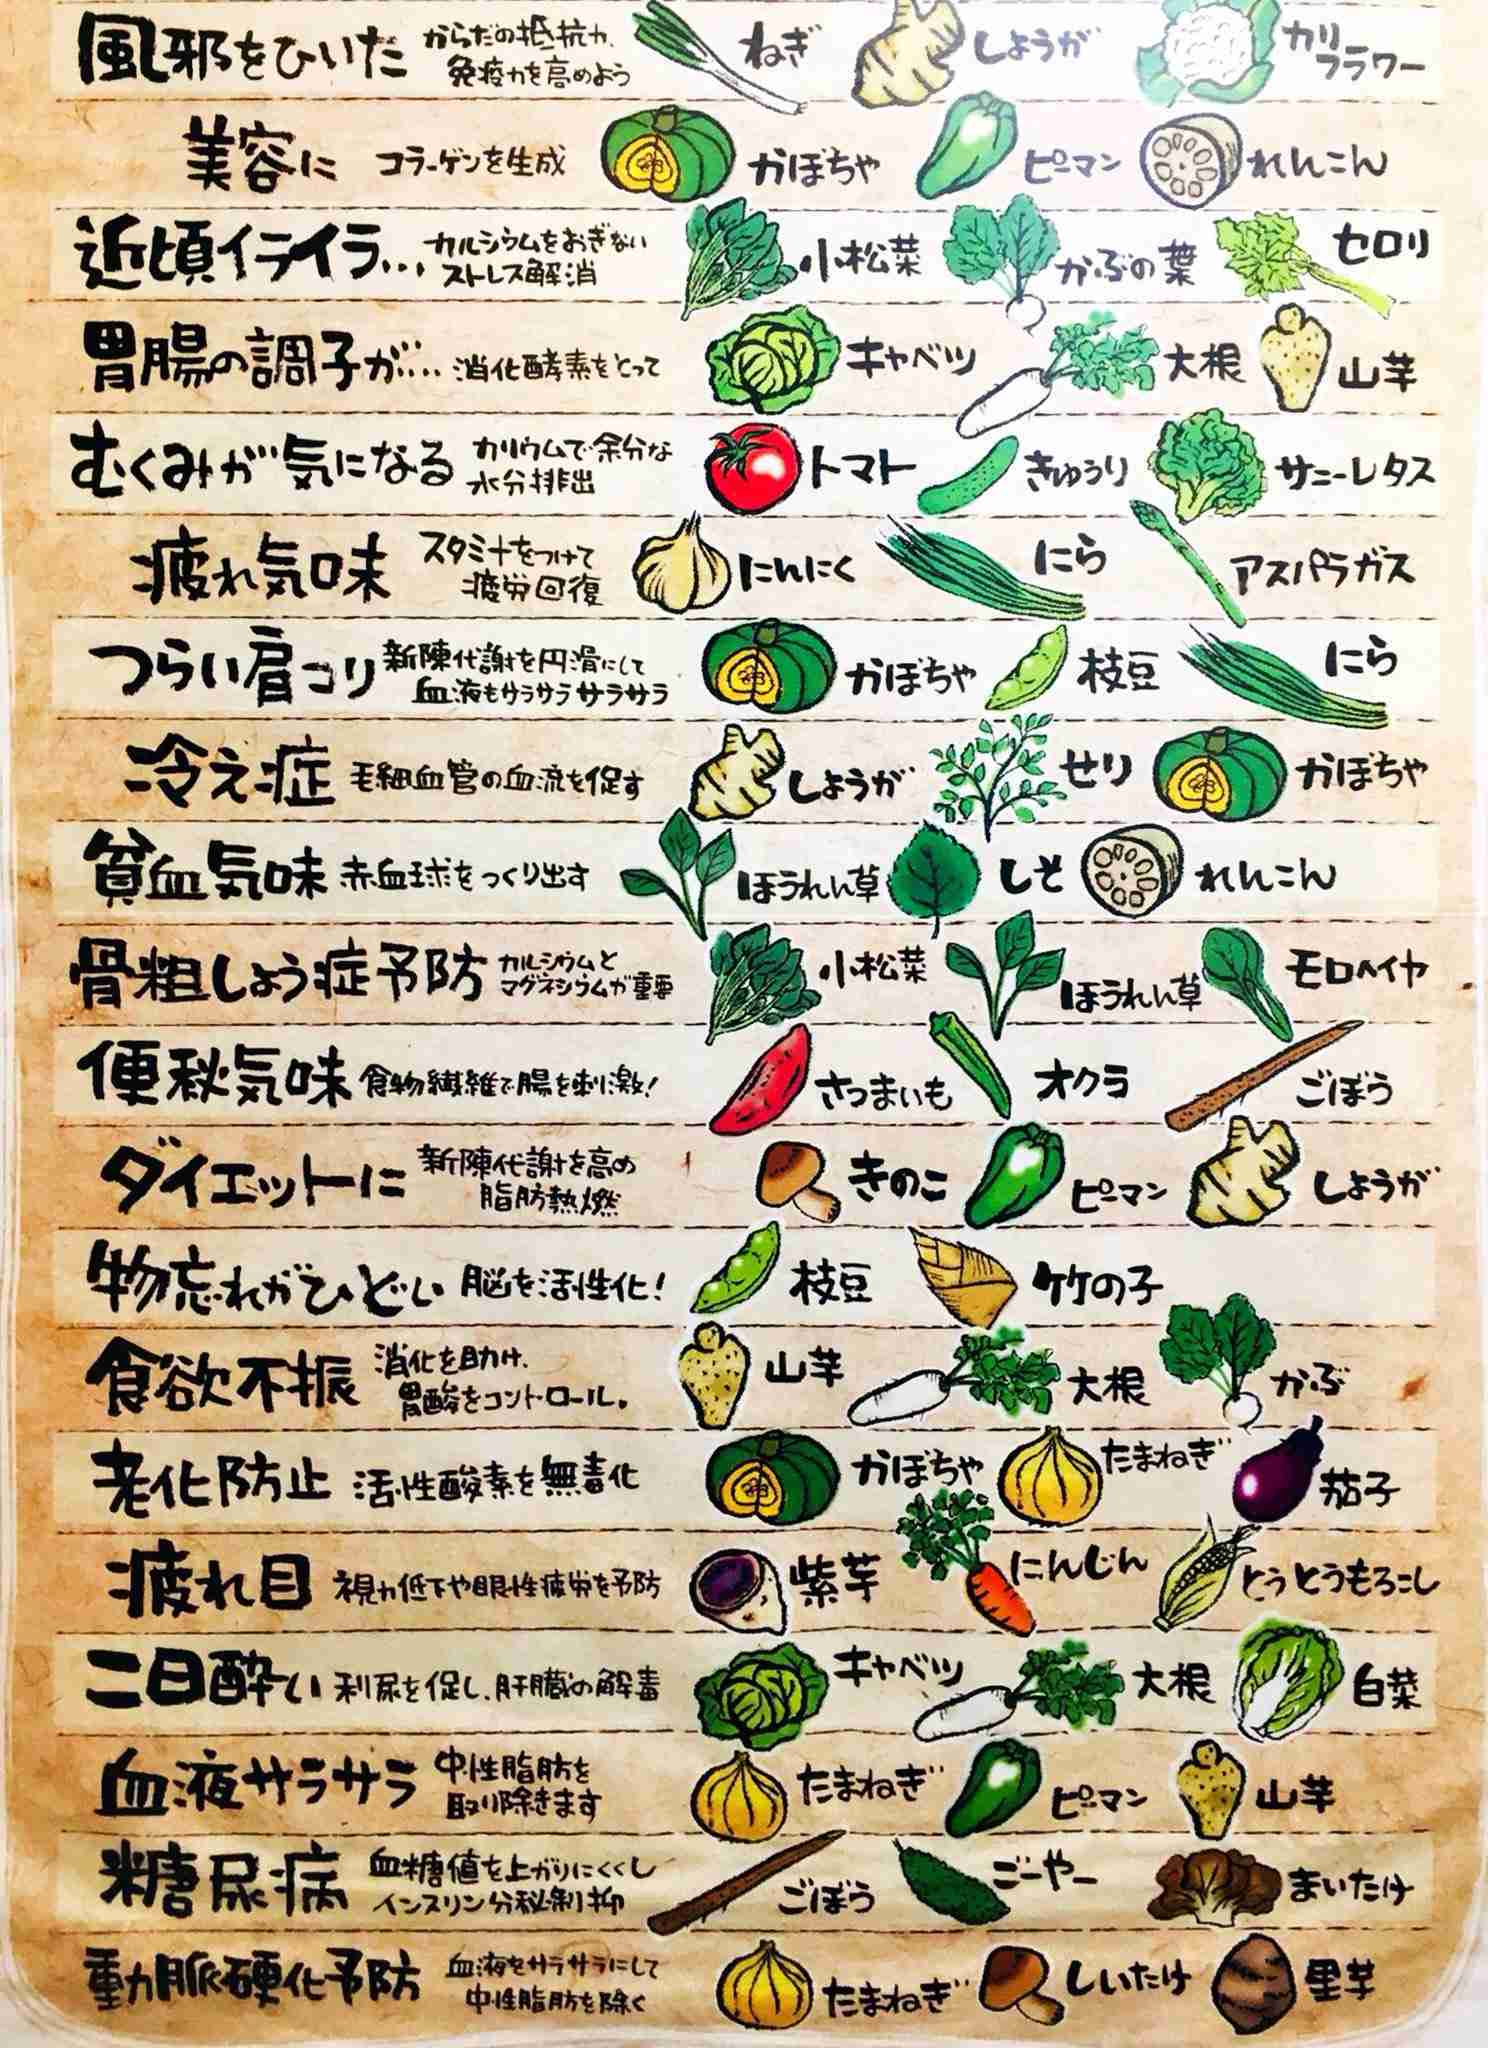 風邪をひいた からだの抵抗力、 ねぎ しょうが カリ
免疫力を高めよう フラワー
美容に コラーゲンを生成 かぼちゃ ピーマン れんこん
近頃イライラ… カルシウムをおぎない 小松菜 かぶの葉 セロリ
ストレス解消
胃腸の調子が… 消化酵素をとって キャベツ 大根 山芋
むくみが気になる カリウムで余分な トマト きゅうり サニーレタス
水分排出
疲れ気味 スタミナをつけて にんにく にら アスパラガス
疲労回復
つらい肩コリ 新陳代謝を円滑にして かぼちゃ 枝豆 にら
血液もサラサラサラサラ
冷え症 毛細血管の血流を促す しょうが せり かぼちゃ
貧血気味 赤血球をつくり出す ほうれん草 しそ れんこん
骨粗しょう症予防 カルシウムと 小松菜 ほうれん草 モロヘイヤ
マグネシウムが重要
便秘気味 食物繊維で腸を刺激! さつまいも オクラ ごぼう
ダイエットに 新陳代謝を高め きのこ ピーマン しょうが
脂肪熱燃
物忘れがひどい 脳を活性化! 枝豆 竹の子
食欲不振 消化を助け、 山芋 大根 かぶ
胃酸をコントロール。
老化防止 活性酸素を無毒化 かぼちゃ たまねぎ 茄子
疲れ目 視力低下や眼性疲労を予防 紫芋 にんじん とうとうもろこし
二日酔い 利尿を促し、肝臓の解毒 キャベツ 大根 白菜
血液サラサラ 中性脂肪を たまねぎ ピーマン 山芋
取り除きます
糖尿病 血糖値を上がりにくくし ごぼう ごーやー まいたけ
インスリン分秘制抑
動脈硬化予防 血液をサラサラにして たまねぎ しいたけ 里芋
中性脂肪を除く